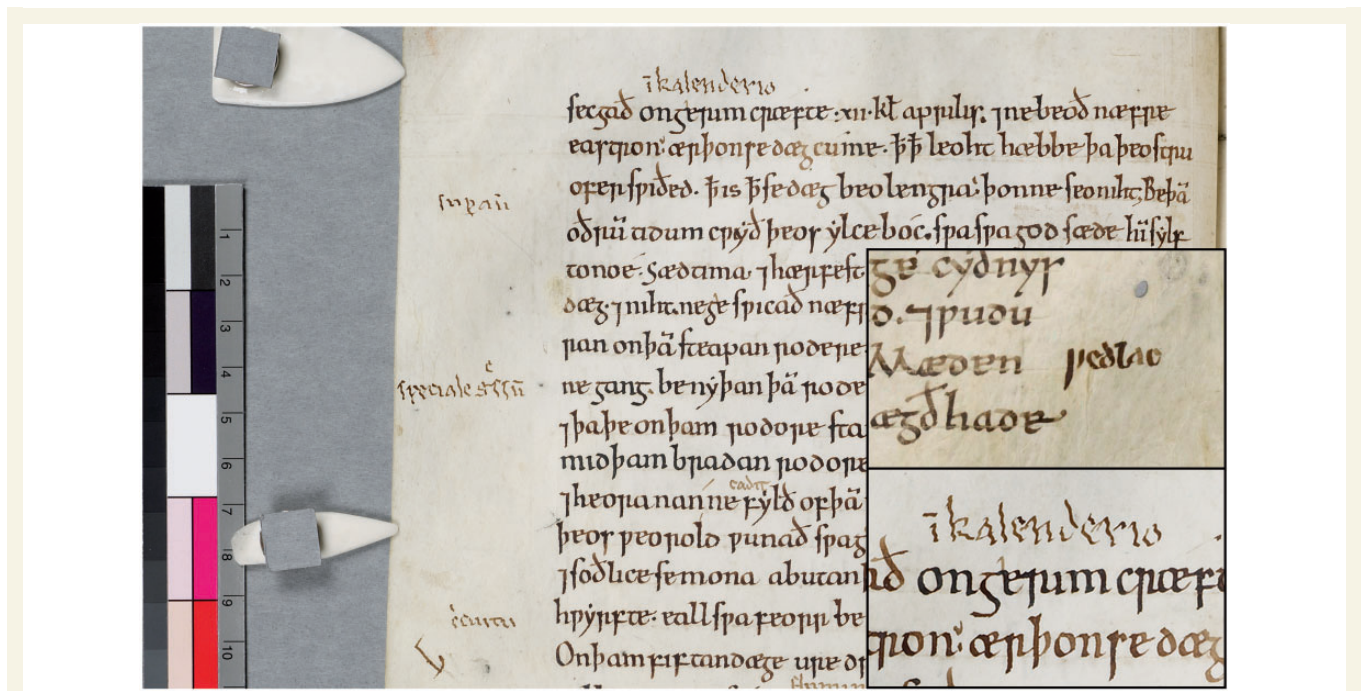 ī kalenderio
secgað on gerumcræfte .xii. kł aprilis. ⁊ ne beoð næfre
eastron. ær þon se dæg cume. ꝥ ꝥ leoht hæbbe þa þeostru
ofersƿiðed. ꝥ is ꝥ se dæg beo lengra þonne seo niht; Be þā
oðrū tidum cƿyð þeos ylce boc. sƿa sƿa god sæde hī sylf
to noe. Sædtima ⁊ hærfest
dæg. ⁊ niht. ne gesƿicað næfr
ran on þā steapan rodere
speciale
ne gang. benyþan þā rode
⁊ þa þe on þam rodore sta
mid þam bradan rodore
cadit
⁊ heora nan ne fylð of þā
þeos ƿeorold ƿunað sƿa g
⁊ soðlice se mona abutan
hƿyrfte. eall sƿa feorr be
On þam fiftan dæge ure dr
1
2
3
4
5
6
7
8
9
10
ge cyðnys
d. ⁊ ƿudu
Mæden
ægðhade
ī kalenderio
að on gerumcræf
tron. ær þon se dæg